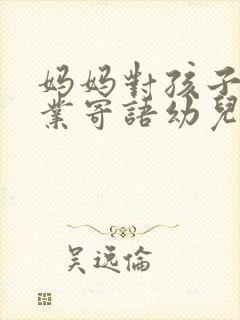 妈妈對孩子
業寄語幼兒
吴远倫